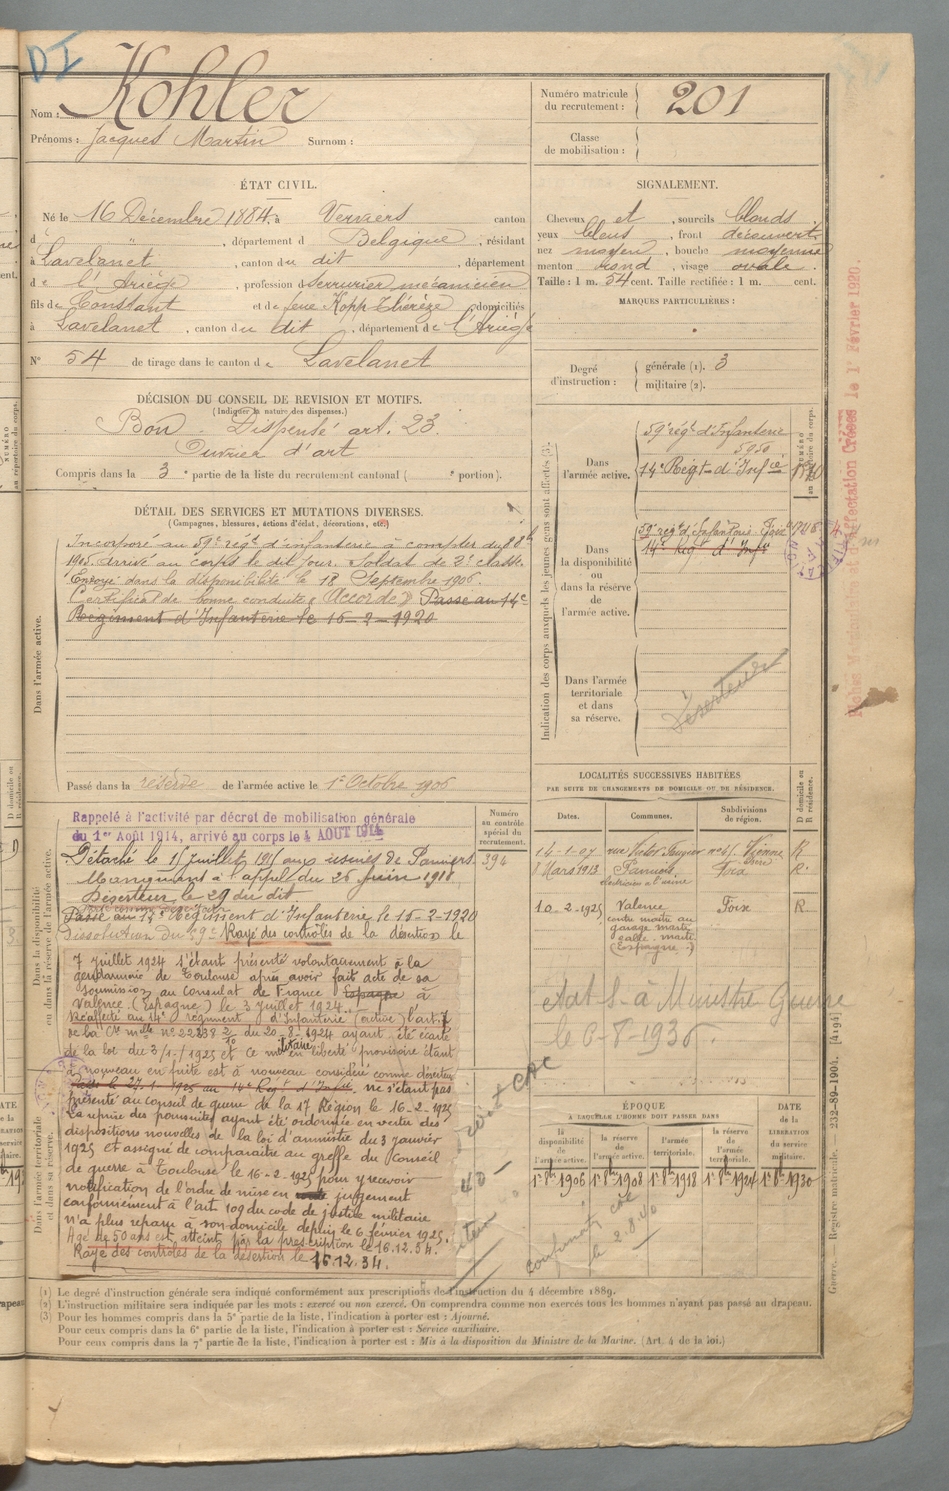 DI
Nom : Kohler
Prénoms : Jacques Martin Surnom :
Numéro matricule du recrutement : 201
Classe de mobilisation :
ÉTAT CIVIL.
Né le 16 Décembre 1884, à Verviers canton
d , département d Belgique , résidant
à Lavelanet , canton du dit , département
de l'Ariège , profession d serrurier mécanicien
fils de Constant et de feue Kopp Thérèze , domiciliés
à Lavelanet , canton du dit , département de l'Ariège
N° 54 de tirage dans le canton de Lavelanet
SIGNALEMENT.
Cheveux et , sourcils blonds
yeux bleus , front découvert
nez moyen , bouche moyenne
menton rond , visage ovale .
Taille : 1 m. 54 cent. Taille rectifiée : 1 m. cent.
MARQUES PARTICULIÈRES :
Degré d'instruction : générale (1). 3
militaire (2).
DÉCISION DU CONSEIL DE REVISION ET MOTIFS.
(Indiquer la nature des dispenses.)
Bon - Dispensé art. 23
Ouvrier d'art
Compris dans la 3 e partie de la liste du recrutement cantonal ( e portion).
DÉTAIL DES SERVICES ET MUTATIONS DIVERSES.
(Campagnes, blessures, actions d'éclat, décorations, etc.)
Incorporé au 59e régt d'infanterie à compter du 8 8bre
1905. Arrivé au corps le dit jour. Soldat de 2e classe
Envoyé dans la disponibilité le 18 Septembre 1906.
Certificat de bonne conduite "Accordé" Passé au 14e
Régiment d'Infanterie le 16-2-1920
Dans l'armée active.
Passé dans la réserve de l'armée active le 1er Octobre 1906
Indication des corps auxquels les jeunes gens sont affectés (3).
NUMÉRO au répertoire du corps.
Dans l'armée active.
59e régt d'Infanterie
5950
14e Régt d'Infie
Dans la disponibilité ou dans la réserve de l'armée active.
59e régt d'Infanterie Foix
14e Régt d'Infie
Dans l'armée territoriale et dans sa réserve.
Déserteur
Fiches Matricule et d'Affectation Créées le 1er Février 1920.
LOCALITÉS SUCCESSIVES HABITÉES
PAR SUITE DE CHANGEMENTS DE DOMICILE OU DE RÉSIDENCE.
Dates. Communes. Subdivisions de région. D domicile ou R résidence.
14-1-07 rue Victor Vienne Isère R
8 Mars 1913 Pamiers Foix R.
électricien à l'usine
10-2-1925 Valence Foix R
contre maitre au
garage
(Espagne)
Etat S. à Ministre Guerre
le 6-8-1936.
Dans la disponibilité ou dans la réserve de l'armée active.
Numéro au contrôle spécial du recrutement.
394
Rappelé à l'activité par décret de mobilisation générale
du 1er Août 1914, arrivé au corps le 4 AOUT 1914
Détaché le 15 juillet 1915 aux usines de Pamiers
Manquant à l'appel du 26 juin 1918
Déserteur le 29 du dit
Passé au 14e Régiment d'Infanterie le 15-2-1920
Dissolution du 59e Rayé des contrôles de la désertion le
7 juillet 1924 s'étant présenté volontairement à la
gendarmerie de Toulouse après avoir fait acte de sa
soumission au consulat de France Espagne à
Valence (Espagne) le 3 juillet 1924
Réaffecté au 14e régiment d'Infanterie (active) l'art. 7
de la Cre mlle no 22838 2/10 du 20-8-1924 ayant été écarté
de la loi du 3/1/1925 et ce militaire en liberté provisoire étant
à nouveau en fuite est à nouveau considéré comme déserteur
Passé le 27-1-1925 au 14e Régt d'Infie, ne s'étant pas
présenté au conseil de guerre de la 17 Région le 16-2-1925
La reprise des poursuites ayant été ordonnée en vertu des
dispositions nouvelles de la loi d'amnistie du 3 janvier
1925 et assigné de comparaître au greffe du Conseil
de guerre à Toulouse le 16-2-1925 pour y recevoir
notification de l'ordre de mise en jugement
conformément à l'art. 109 du code de justice militaire
n'a plus reparu à son domicile depuis le 6 février 1925.
Agé de 50 ans est atteint par la prescription le 16.12.34.
Rayé des contrôles de la désertion le 16.12.34.
Dans l'armée territoriale et dans sa réserve.
ÉPOQUE
À LAQUELLE L'HOMME DOIT PASSER DANS
la disponibilité de l'armée active. la réserve de l'armée active. l'armée territoriale. la réserve de l'armée territoriale. DATE de la LIBÉRATION du service militaire.
1er 8bre 1906 1er 8bre 1908 1er 8bre 1918 1er 8bre 1924 1er 8bre 1930
le 2.8.40
(1) Le degré d'instruction générale sera indiqué conformément aux prescriptions de l'instruction du 4 décembre 1889.
(2) L'instruction militaire sera indiquée par les mots : exercé ou non exercé. On comprendra comme non exercés tous les hommes n'ayant pas passé au drapeau.
(3) Pour les hommes compris dans la 5e partie de la liste, l'indication à porter est : Ajourné.
Pour ceux compris dans la 6e partie de la liste, l'indication à porter est : Service auxiliaire.
Pour ceux compris dans la 7e partie de la liste, l'indication à porter est : Mis à la disposition du Ministre de la Marine. (Art. 4 de la loi.)
Guerre. — Registre matricule. — 232-89-1904. [4194]